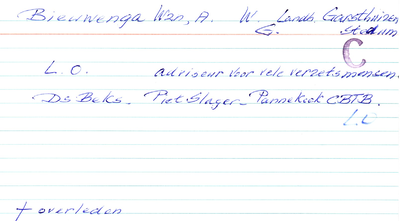 Bieuwenga Wzn, A. W. Landb. Garsthuizen
G. Stedum
C
L.O. adviseur voor vele verzetsmensen.
Ds Beks - Piet Slager - Pannekoek CBTB.
L.O
+ overleden